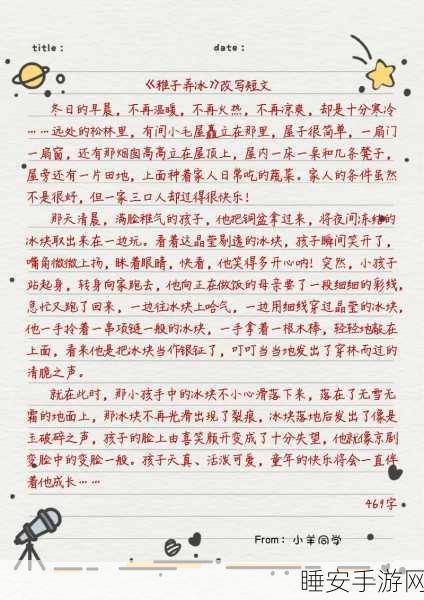 title：
date：
《稚子弄冰》改写短文
冬日的早晨，不再温暖，不再火热，不再凉爽，却是十分寒冷
……远处的松林里，有间小毛屋矗立在那里，屋子很简单，一扇门
一扇窗，还有那烟囱高高立在屋顶上，屋内一床一桌和几条凳子，
屋旁还有一片田地，上面种着家人日常吃的蔬菜。家人的条件虽然
不是很好，但一家三口人却过得很快乐！
那天清晨，满脸稚气的孩子，他把铜盆拿过来，将夜间冻结的
冰块取出来在一边玩。看着这晶莹剔透的冰块，孩子瞬间笑开了，
嘴角微微上扬，眯着眼睛，快看，他笑得多开心呐！突然，小孩子
站起身，转身向家跑去，他向正在做饭的母亲要了一段细细的彩线，
急忙又跑了回来，一边往冰块上哈气，一边用细线穿过晶莹的冰块，
他一手拎着一串项链一般的冰块，一手拿着一根木棒，轻轻地敲在
上面，看来他是把冰块当作银钲了，叮叮当当地发出了穿林而过的
清脆之声。
就在此时，那小孩手中的冰块不小心滑落下来，落在了无雪无
霜的地面上，那冰块不再光滑出现了裂痕，冰块落地后发出了像是
玉破碎之声，孩子的脸上由喜笑颜开变成了十分失望，他就像京剧
变脸中的变脸一般。孩子天真、活泼可爱，童年的快乐将会一直伴
着他成长……
469字
From：小羊同学
睡安手游网